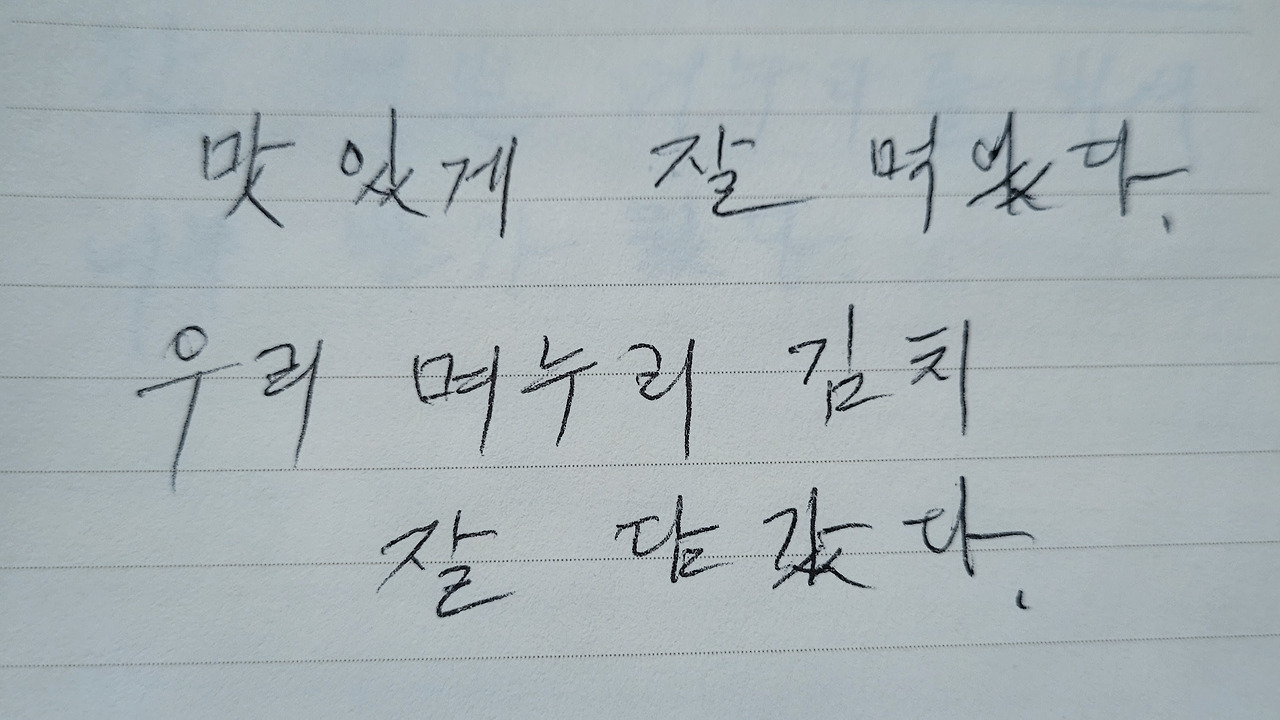 맛있게 잘 먹었다.
우리 며누리 김치
잘 담갔다.